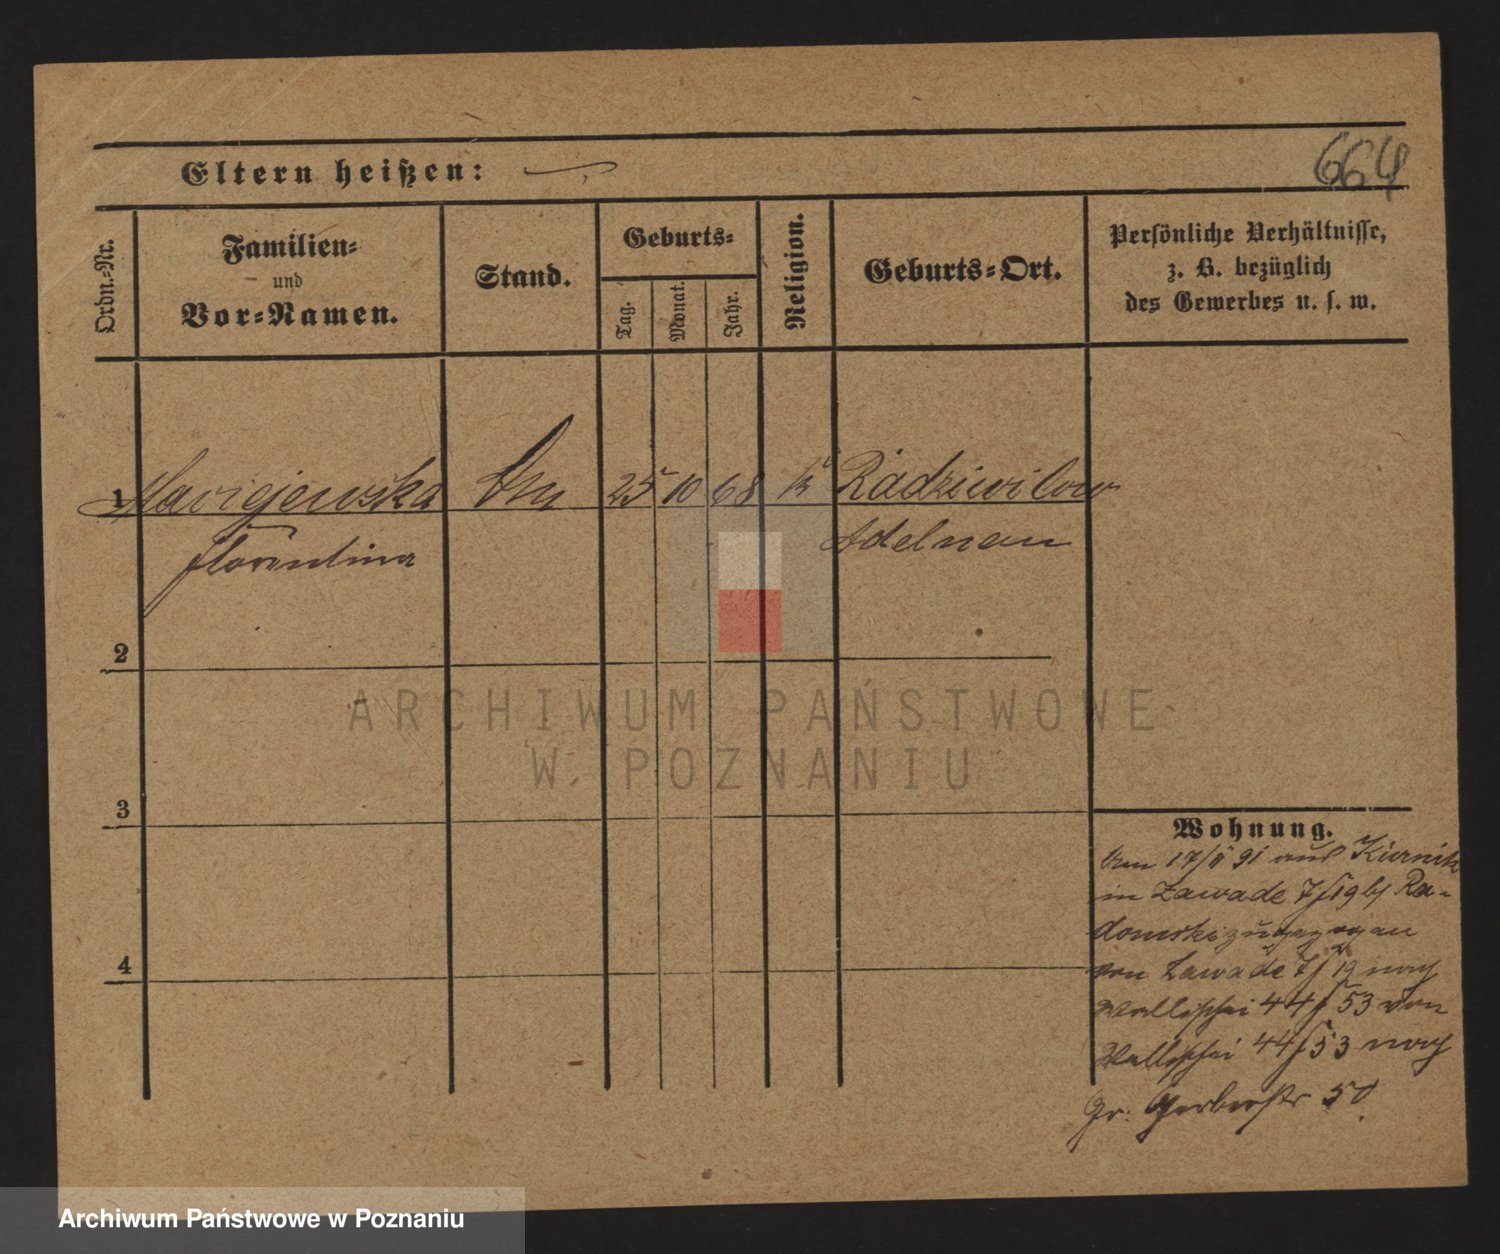 Eltern heißen:
664
Ordn.-Nr.
Familien-
und
Vor-Namen.
Stand.
Geburts-
Tag.
Monat.
Jahr.
Religion.
Geburts-Ort.
Persönliche Verhältnisse,
z. B. bezüglich
des Gewerbes u. s. w.
1 Maciejewska 25 10 68 k Radziwilow
Florentina Adelnau
2
3
4
ARCHIWUM PAŃSTWOWE
W POZNANIU
Wohnung.
Am 17/ 91 aus Kurnik
in Zawade 7/19 bei Ra-
domski zugezogen
von Zawade 7/19 nach
Wallischei 44/53 von
Wallischei 44/53 nach
Gr. Gerberstr 50
Archiwum Państwowe w Poznaniu